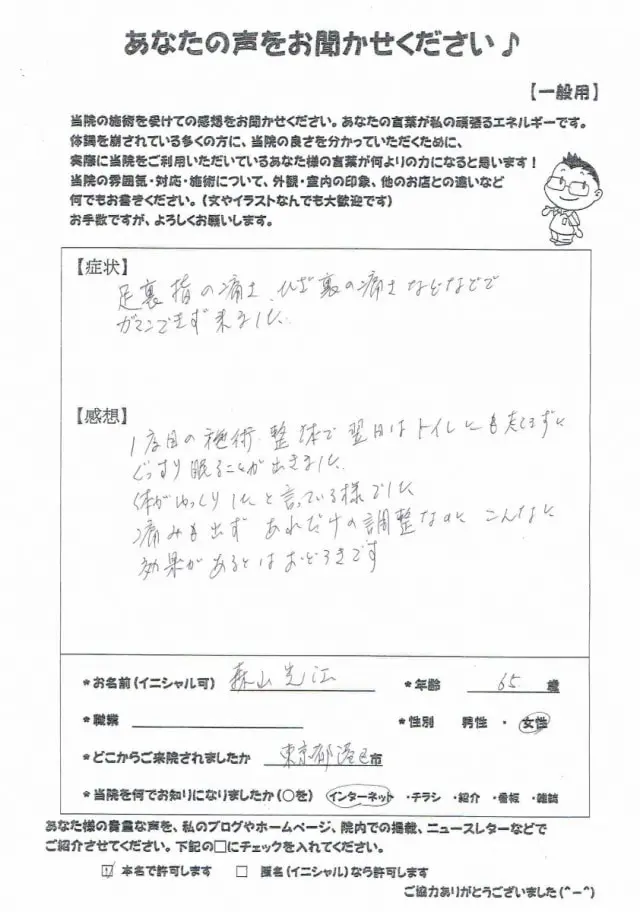 あなたの声をお聞かせください♪
【一般用】
当院の施術を受けての感想をお聞かせください。あなたの言葉が私の頑張るエネルギーです。
体調を崩されている多くの方に、当院の良さを分かっていただくために、
実際に当院をご利用いただいているあなた様の言葉が何よりの力になると思います！
当院の雰囲気・対応・施術について、外観・室内の印象、他のお店との違いなど
何でもお書きください。（文やイラストなんでも大歓迎です）
お手数ですが、よろしくお願いします。
【症状】
足裏指の痛さ、ひざ裏の痛さなどなどで
ガマンできず来ました
【感想】
1度目の施術、整体で翌日はトイレにも起きずに
ぐっすり眠ることが出きました
体がゆっくりしたと言っている様でした
痛みも出ずあれだけの調整なのにこんなに
効果があるとはおどろきです
*お名前（イニシャル可） 森山光江 *年齢 65 歳
*職業 *性別 男性 ・ 女性
*どこからご来院されましたか 東京都港区市
*当院を何でお知りになりましたか（○を） インターネット ・チラシ ・紹介 ・看板 ・雑誌
あなた様の貴重な声を、私のブログやホームページ、院内での掲載、ニュースレターなどで
ご紹介させてください。下記の□にチェックを入れてください。
☑ 本名で許可します □ 匿名（イニシャル）なら許可します
ご協力ありがとうございました（^－^）